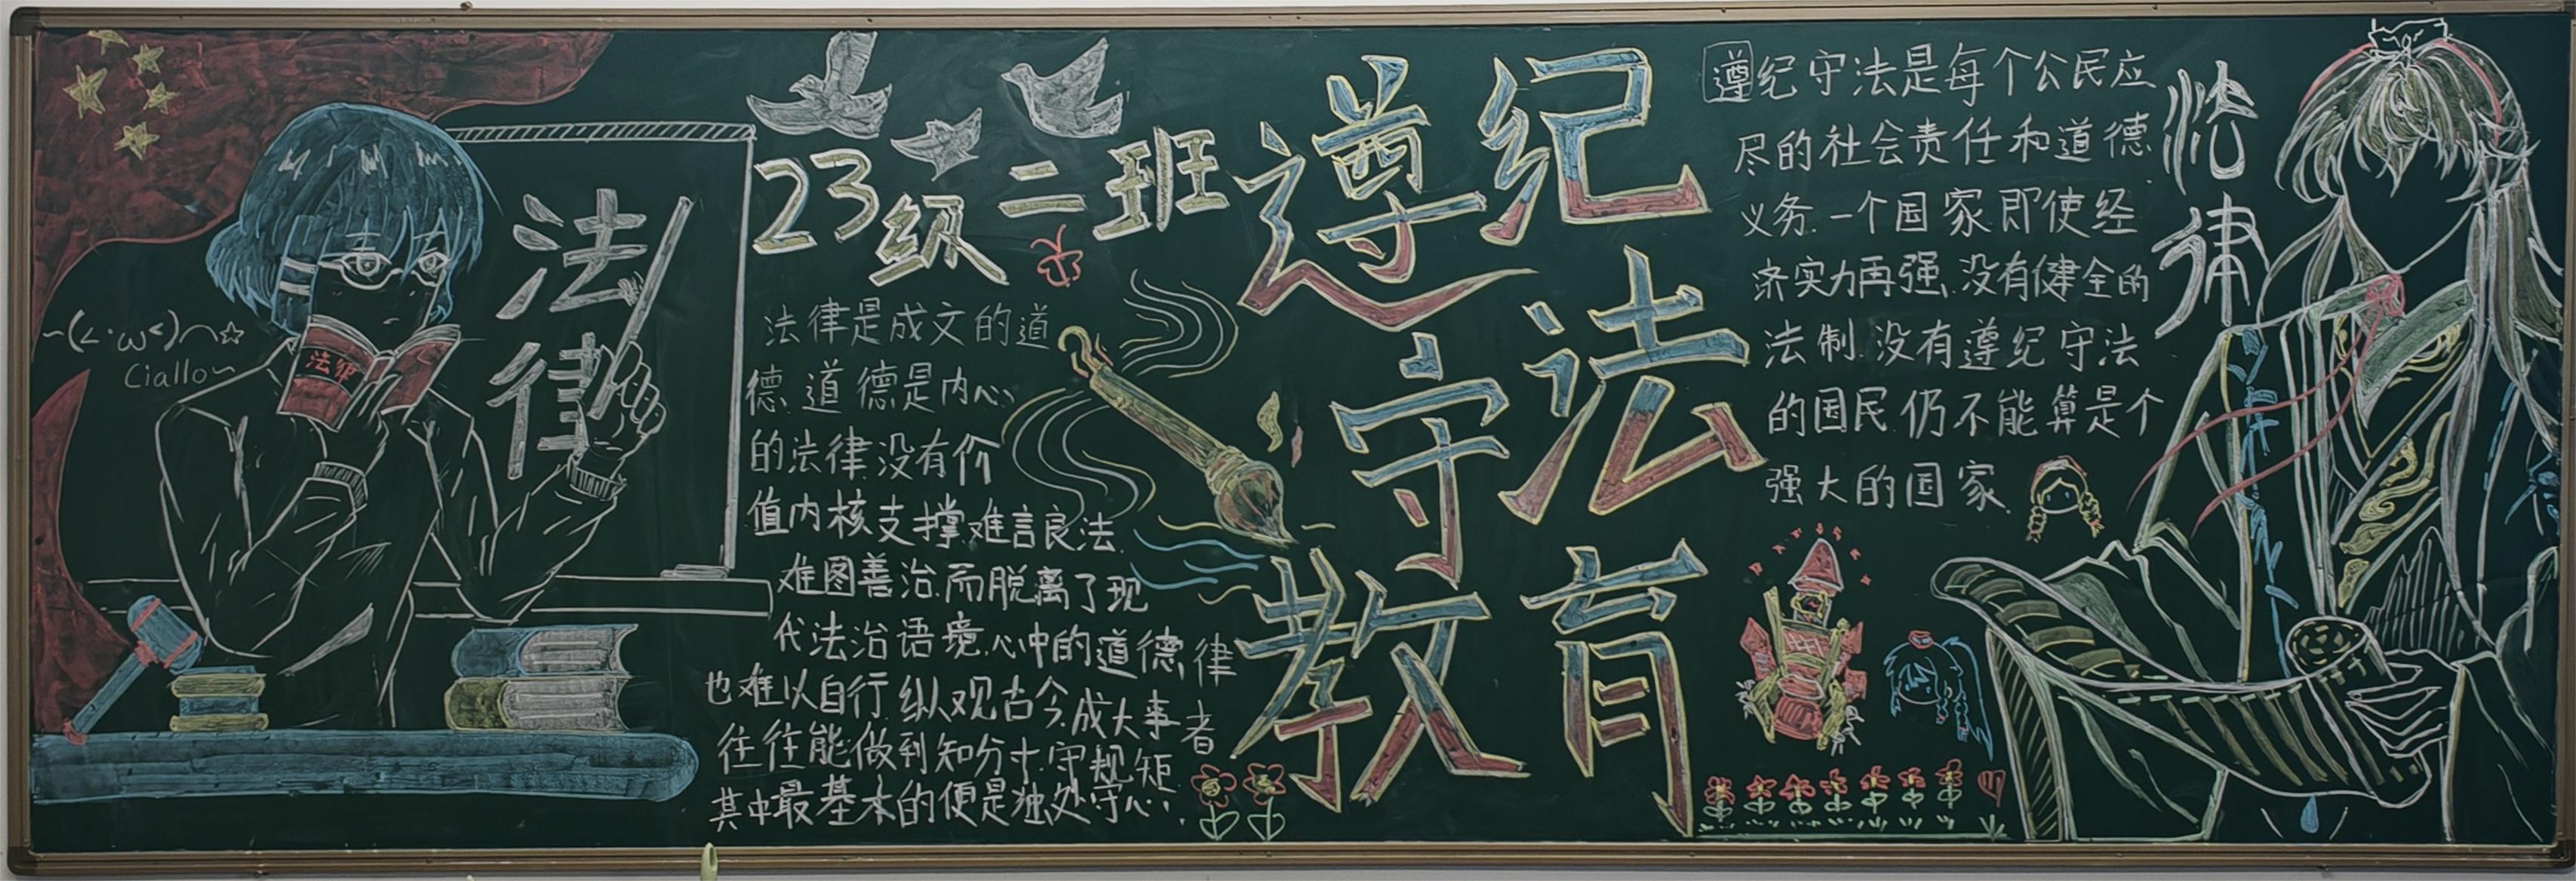 23级二班
遵纪
守法
教育
法律
法律
~(∠·ω<)⌒☆
Ciallo~
法律是成文的道
德、道德是内心
的法律.没有价
值内核支撑.难言良法.
难图善治.而脱离了现
代法治语境.心中的道德律
也难以自行.纵观古今.成大事者
往往能做到知分寸.守规矩
其中最基本的便是独处守心.
遵纪守法是每个公民应
尽的社会责任和道德
义务.一个国家即使经
济实力再强.没有健全的
法制.没有遵纪守法
的国民.仍不能算是个
强大的国家.
法律